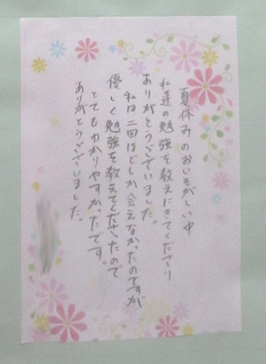 夏休みのおいそがしい中
私達の勉強を教えにきてくださり
ありがとうございました。
私は二回ほどしか会えなかったのですが
優しく勉強を教えてくださったので
とてもわかりやすかったです。
ありがとうございました。